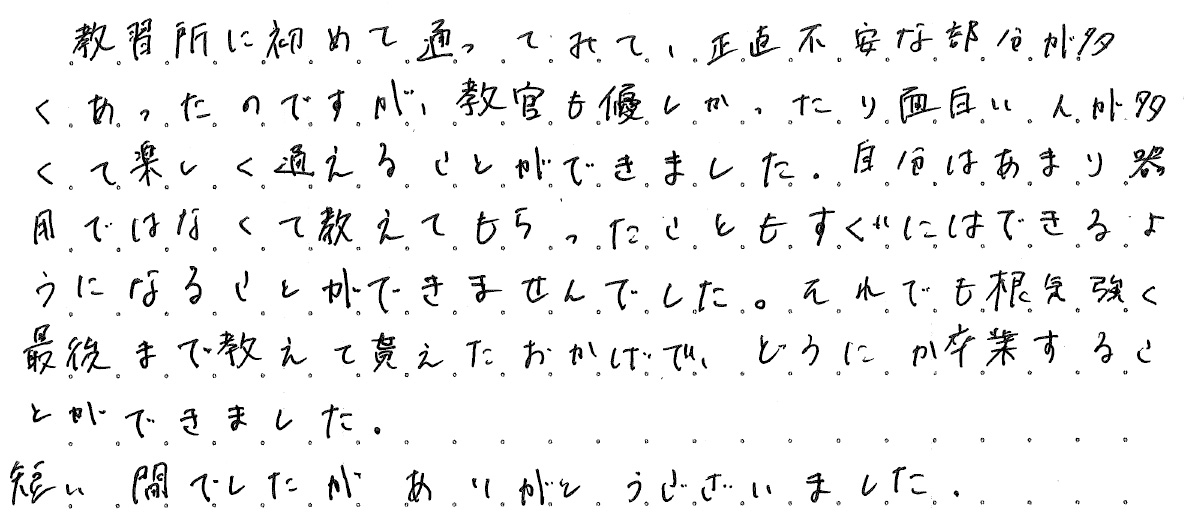 教習所に初めて通ってみて、正直不安な部分が多
くあったのですが、教官も優しかったり面白い人が多
くて楽しく通えることができました。自分はあまり器
用ではなくて教えてもらったこともすぐにはできるよ
うになることができませんでした。それでも根気強く
最後まで教えて貰えたおかげで、どうにか卒業するこ
とができました。
短い間でしたがありがとうございました。